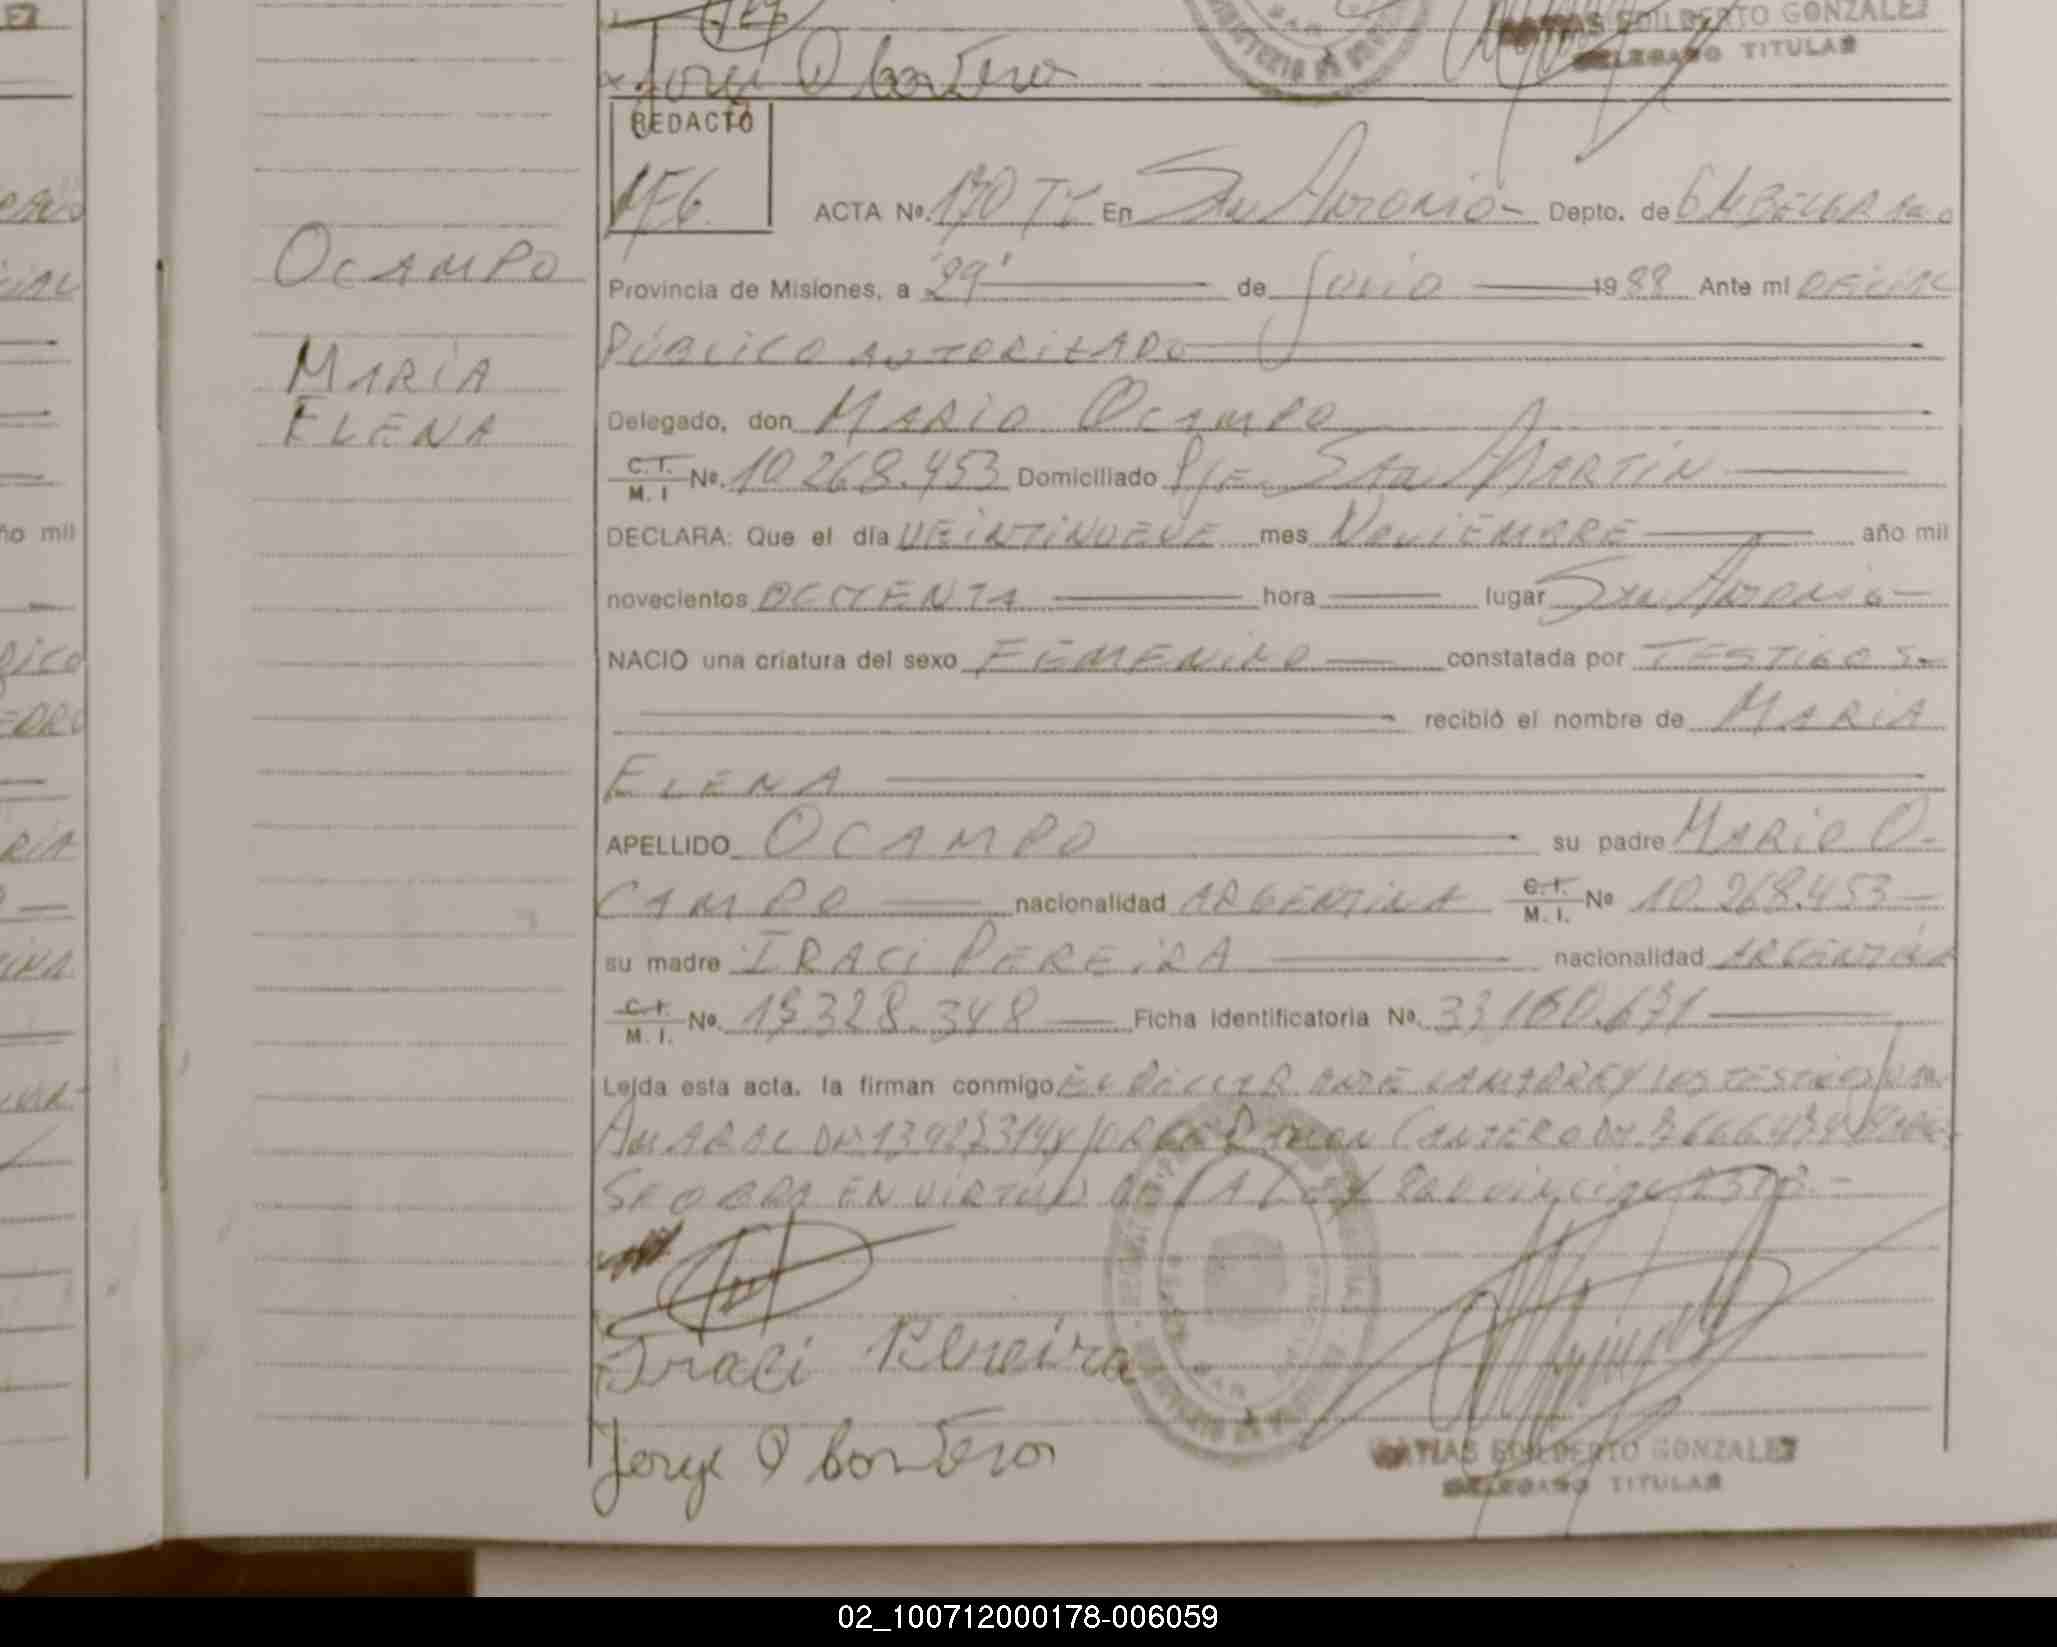 Jorge O Cantero
MATIAS EDILBERTO GONZALEZ
DELEGADO TITULAR
REDACTÓ
ACTA Nº. 170 En San Antonio Depto. de
OCAMPO
Provincia de Misiones, a 29 de Julio 1988 Ante mi OFICIAL
PÚBLICO AUTORIZADO
MARIA
ELENA
Delegado, don MARIO OCAMPO
C.I. M.I Nº. 10.268.453 Domiciliado Pje. San MARTIN
DECLARA: Que el día VEINTINUEVE mes NOVIEMBRE año mil
novecientos OCHENTA hora lugar San Antonio
NACIO una criatura del sexo FEMENINO constatada por TESTIGOS
recibió el nombre de MARIA
ELENA
APELLIDO OCAMPO su padre MARIO O-
CAMPO nacionalidad ARGENTINA C.I. M.I. Nº 10.268.453
su madre IRACI PEREIRA nacionalidad ARGENTINA
C.I. M.I. Nº. 328.348 Ficha identificatoria Nº.
Leída esta acta, la firman conmigo LA MADRE Y LOS TESTIGOS
AMARAL JORGE RAMON CANTERO
SE OBRA EN VIRTUD DE LA LEY PROVINCIAL
Iraci Pereira
Jorge O Cantero
MATIAS EDILBERTO GONZALEZ
DELEGADO TITULAR
año mil
02_100712000178-006059